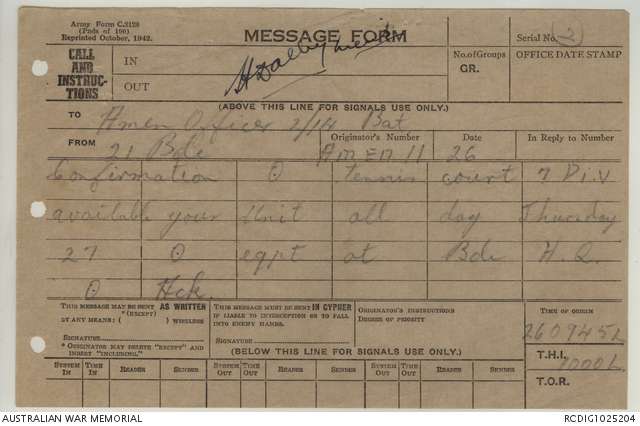 Army Form C.2128
(Pads of 100)
Reprinted October, 1942.
MESSAGE FORM
Serial No. 3
CALL
AND
INSTRUC-
TIONS
IN
OUT
No. of Groups
GR.
OFFICE DATE STAMP
(ABOVE THIS LINE FOR SIGNALS USE ONLY.)
TO Amen Officer 2/14 Bat
FROM 21 Bde
Originator's Number
Am En 11
Date
26
In Reply to Number
Confirmation O tennis court 7 Div
available your Unit all day Thursday
27 O eqpt at Bde H.Q.
O Ack.
THIS MESSAGE MAY BE SENT AS WRITTEN
* (EXCEPT)
BY ANY MEANS: ( ) WIRELESS
SIGNATURE
* ORIGINATOR MAY DELETE "EXCEPT" AND
INSERT "INCLUDING."
THIS MESSAGE MUST BE SENT IN CYPHER
IF LIABLE TO INTERCEPTION OR TO FALL
INTO ENEMY HANDS.
SIGNATURE
ORIGINATOR'S INSTRUCTIONS
DEGREE OF PRIORITY
TIME OF ORIGIN
260945L
T.H.I. 1000L
T.O.R.
(BELOW THIS LINE FOR SIGNALS USE ONLY.)
SYSTEM IN TIME IN READER SENDER SYSTEM OUT TIME OUT READER SENDER SYSTEM OUT TIME OUT READER SENDER
AUSTRALIAN WAR MEMORIAL
RCDIG1025204